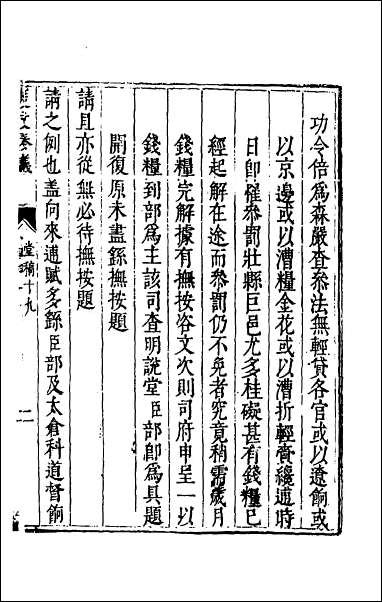 功令倍爲森嚴查參法無輕貸各官或以遼餉或
以京邊或以漕糧金花或以漕折輕賫纔逋時
日卽催參罰壯縣巨邑尤多桂礙甚有錢糧已
經起解在途而參罰仍不免者究竟稍需歲月
錢糧完解據有撫按咨文次則司府申呈一以
錢糧到部爲主該司查明說堂臣部卽爲具題
開復原未盡繇撫按題
請且亦從無必待撫按題
請之例也盖向來逋賦多繇臣部及太倉科道督餉
奏議
堂稿十九
二